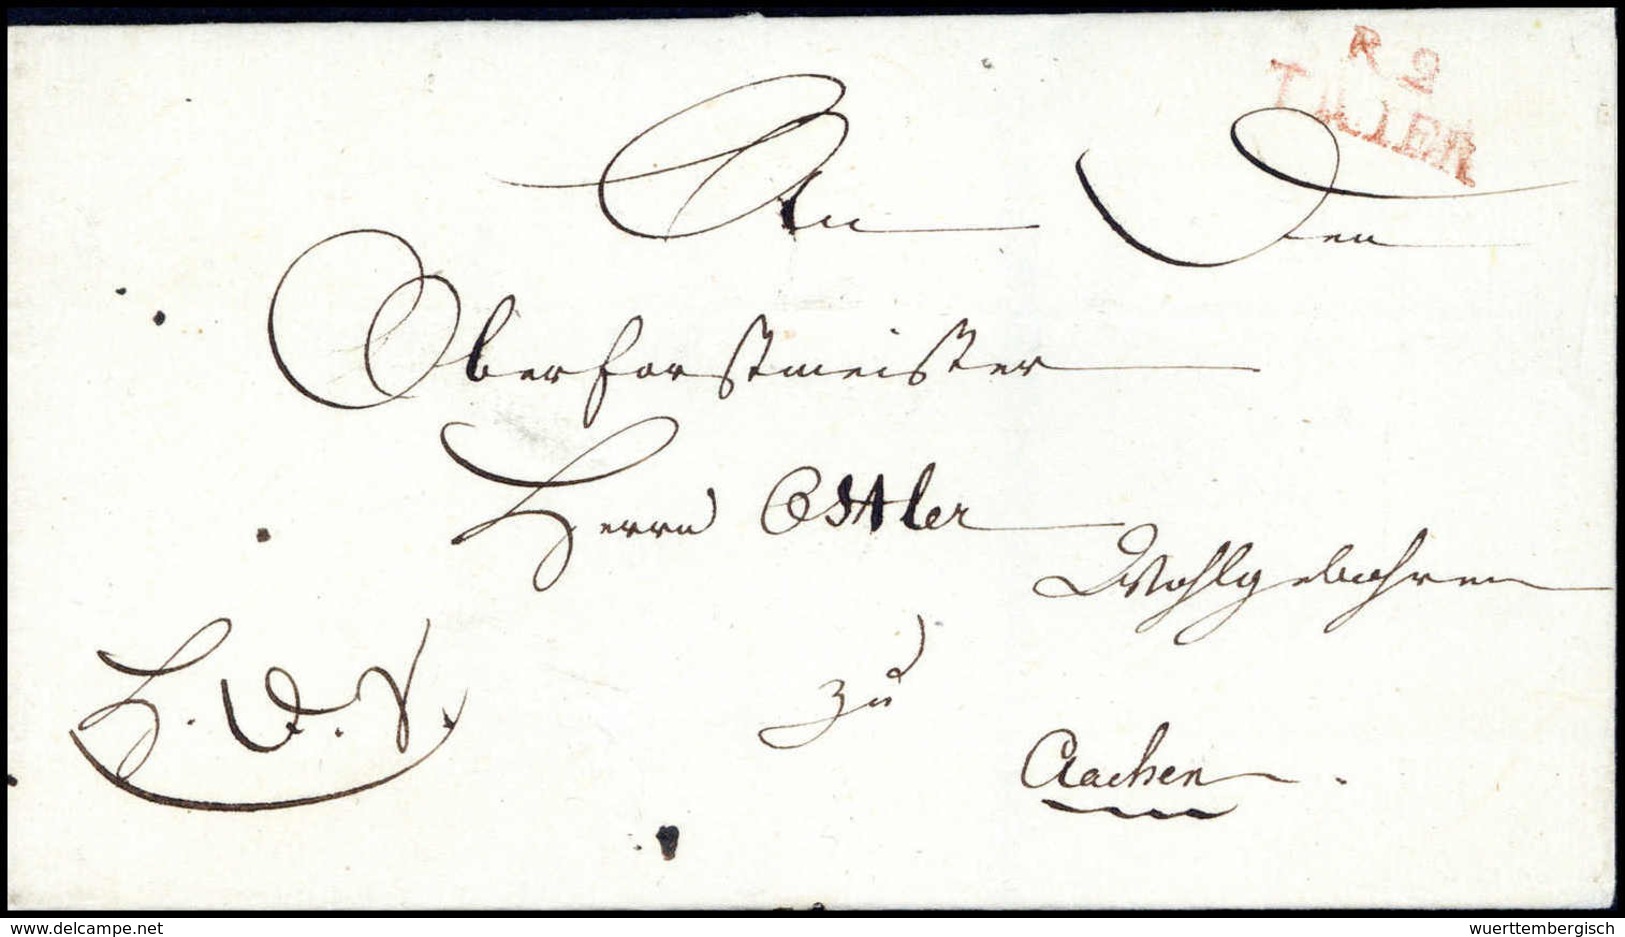 R 2
TRIER
An Den
Oberforstmeister
Herrn Ostler
Wohlgebohren
H. D. S.
zu
Aachen.
www.delcampe.net
wuerttembergisch